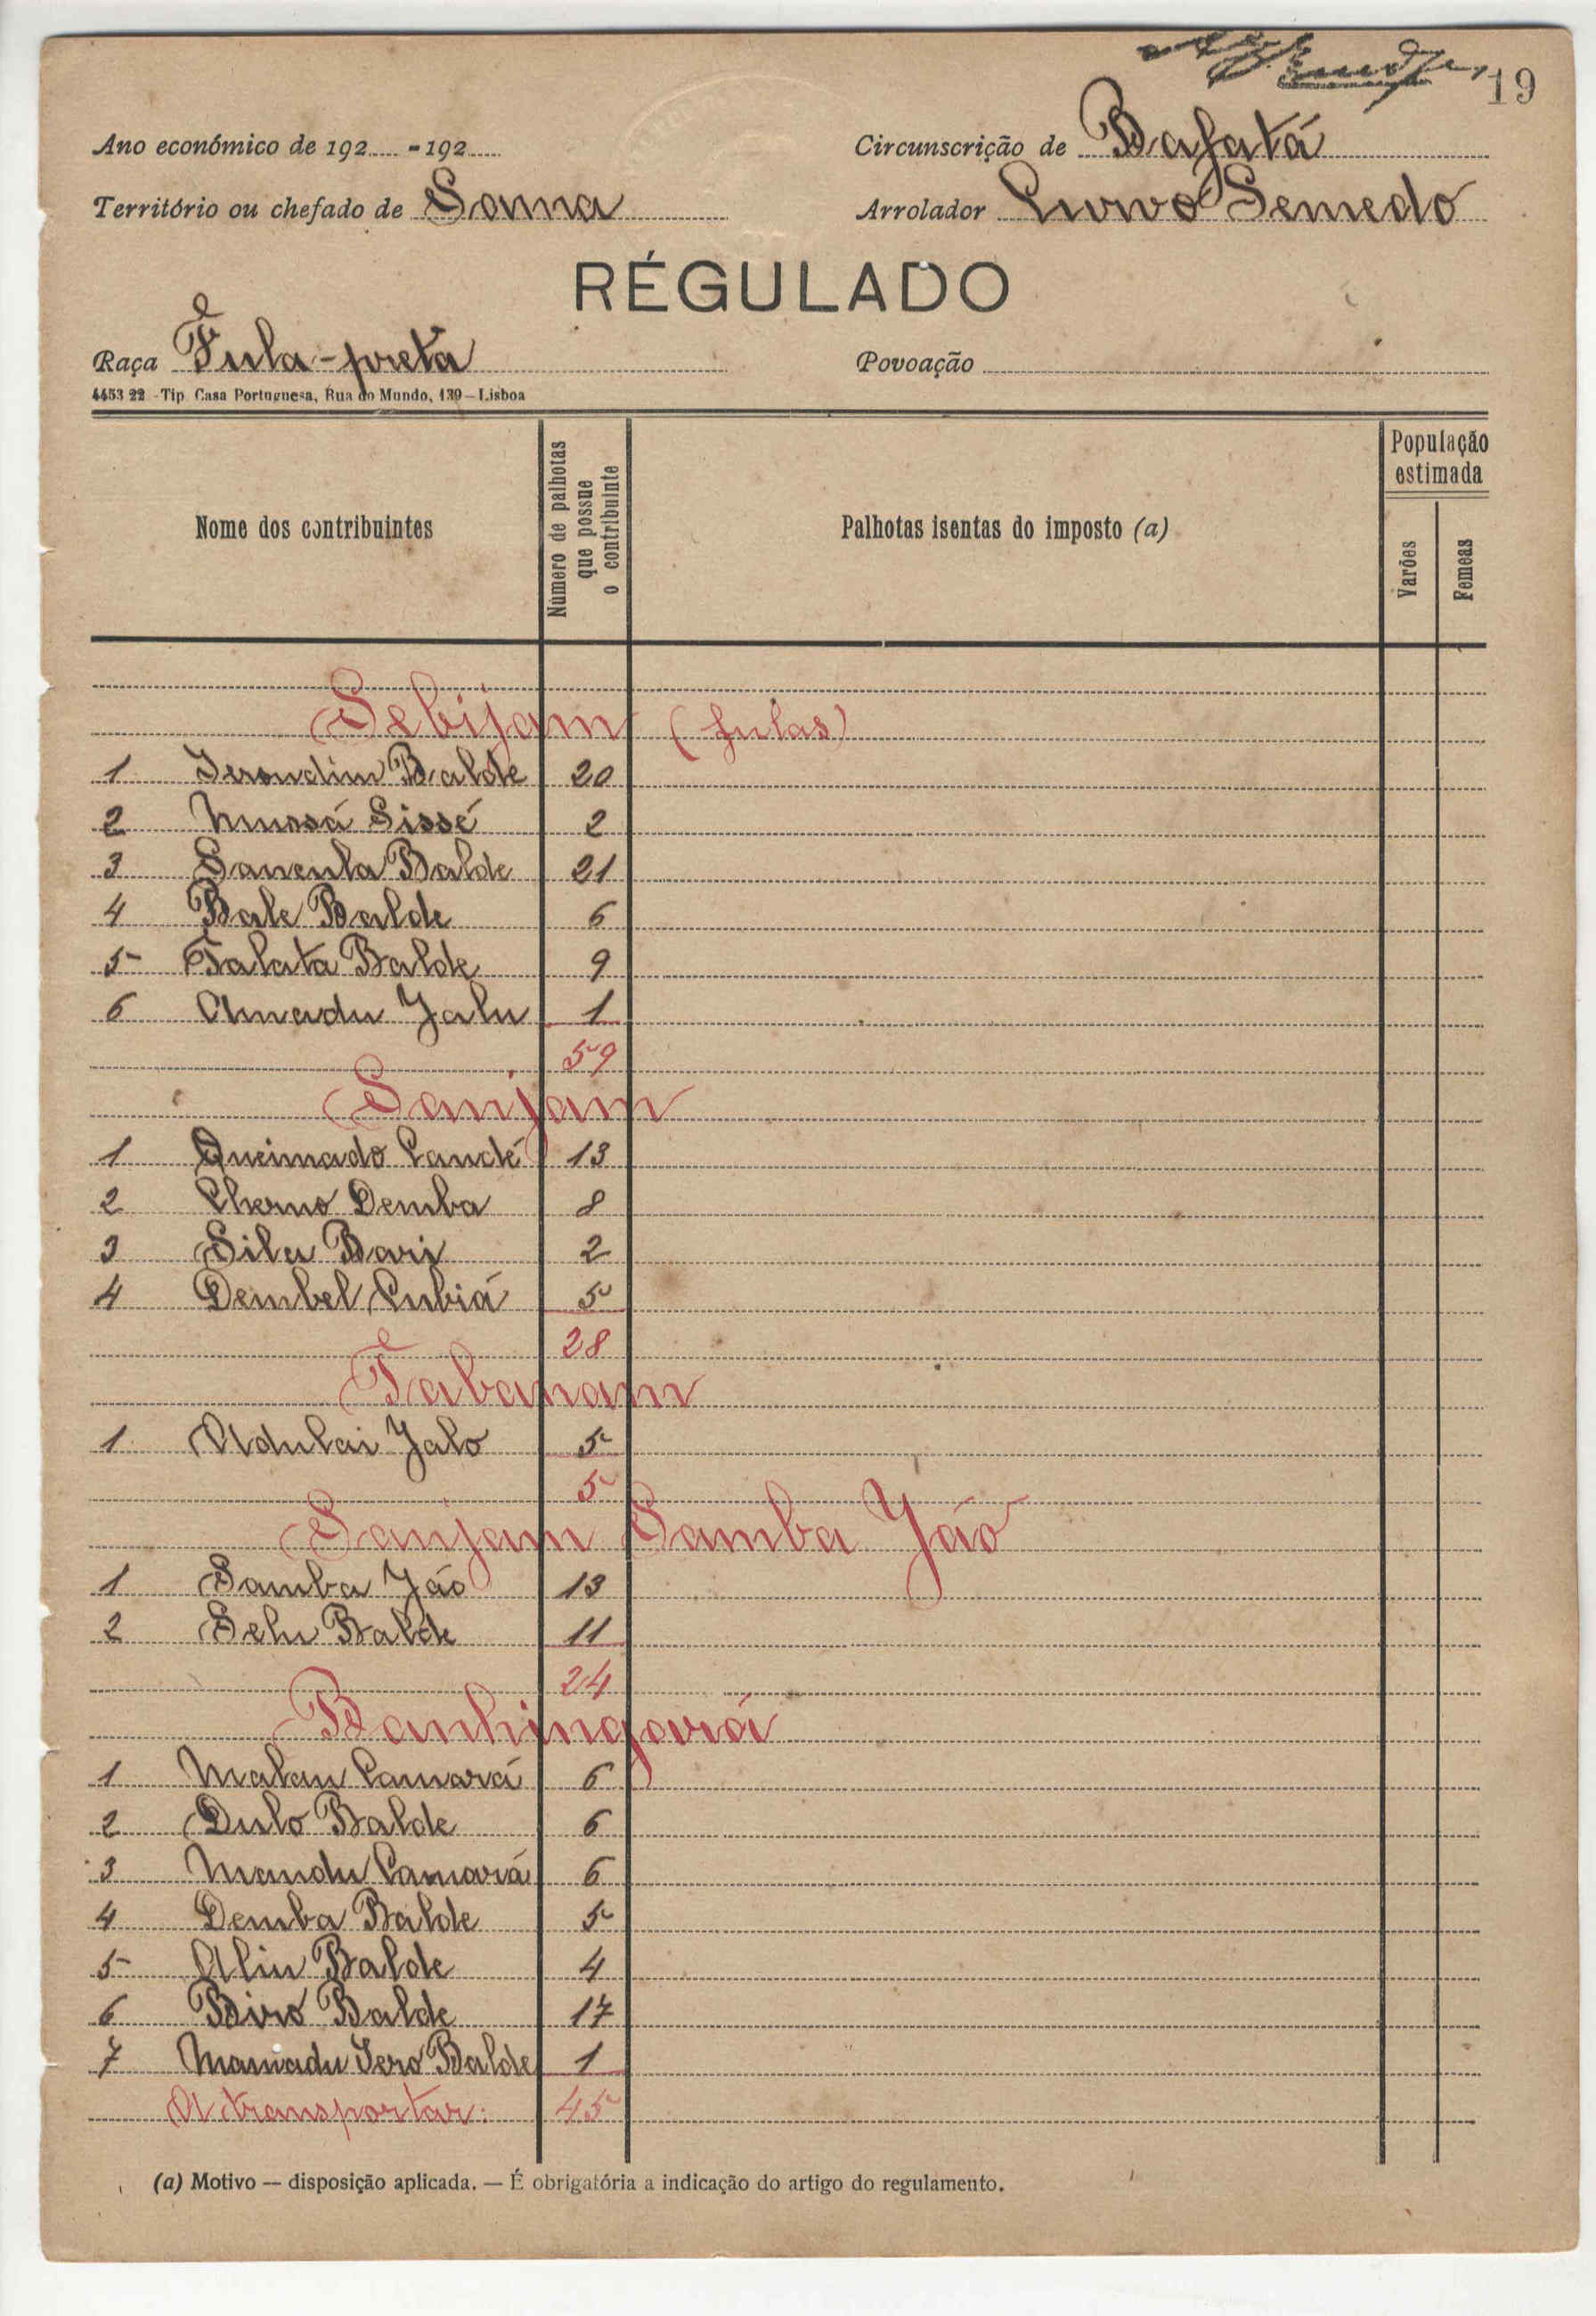 19
Ano económico de 192..... - 192.....
Circunscrição de Bafatá
Território ou chefado de Sama
Arrolador Semedo
RÉGULADO
Raça Fula-preta
Povoação
4453 22 - Tip. Casa Portuguesa, Rua do Mundo, 139 — Lisboa
Nome dos contribuintes
Número de palhotas que possue o contribuinte
Palhotas isentas do imposto (a)
População estimada
Varões
Femeas
Sebijam (fulas)
1 Balde 20
2 Mussá Sissé 2
3 Sanenla Balde 21
4 Bale Balde 6
5 Talata Balde 9
6 Amadu Jalu 1
59
Sanjam
1 Queimado Candé 13
2 Cherno Demba 8
3 Sila Bari 2
4 Dembel Cubiá 5
28
Tabanam
1 Adulai Jalo 5
5
Sanjam Samba Jáo
1 Samba Jáo 13
2 Selu Balde 11
24
Banhingará
1 Malan Camará 6
2 Dulo Balde 6
3 Mandu Camará 6
4 Demba Balde 5
5 Aliu Balde 4
6 Biró Balde 17
7 Mamadu Iero Balde 1
A transportar: 45
(a) Motivo — disposição aplicada. — É obrigatória a indicação do artigo do regulamento.